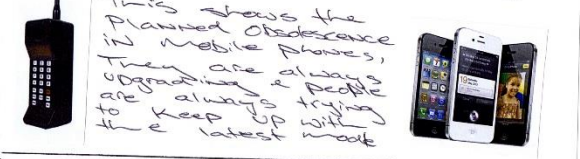 This shows the
Planned Obsolescence
in Mobile phones,
They are always
upgrading & people
are always trying
to keep up with
the latest mode